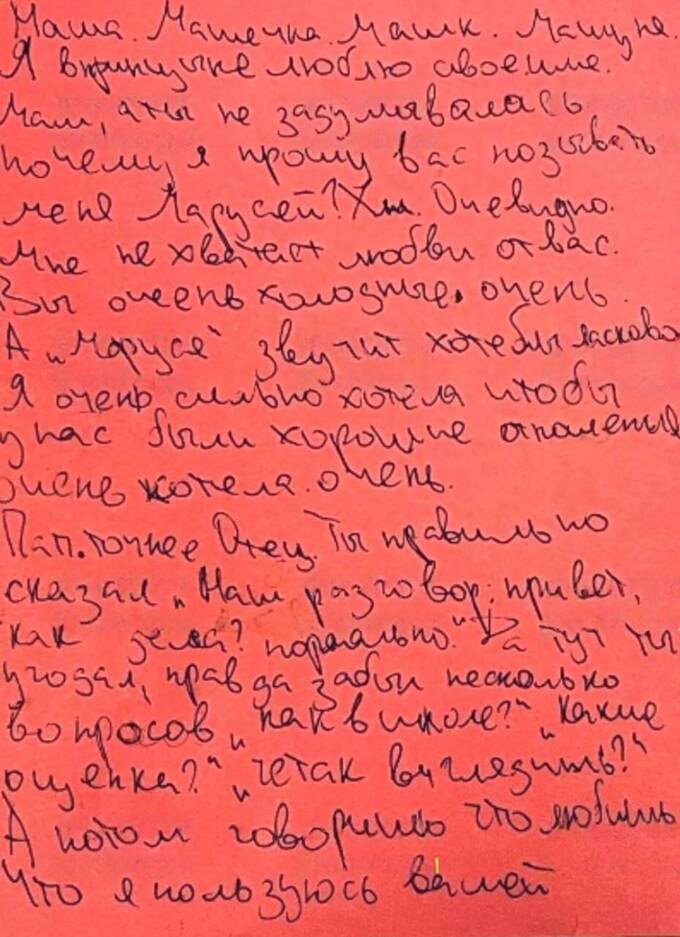 Маша. Машечка. Машк. Машуне.
Я впринцыпе люблю своеиме.
Мам, аты не задумывалась
почему я прошу вас позывать
меня Марусей? Хм. Очевидно.
Мне не хватает любви отвас.
Вы очеень холодные. очень.
А „Маруся“ звучит хотебы ласково
Я очень сильно хотела чтобы
у нас были хорошие отнашения
очень хотела. очень.
Пап. точнее Отец. Ты правильно
сказал „Наш разговор: привет,
как дела? нормально.“ Да тут ты
угодал, правда забыл несколько
вопросов „как в школе?“ „Какие
оценка?“ „четак выглядишь?“
А потом говоришь что любишь
Что я пользуюсь вашей